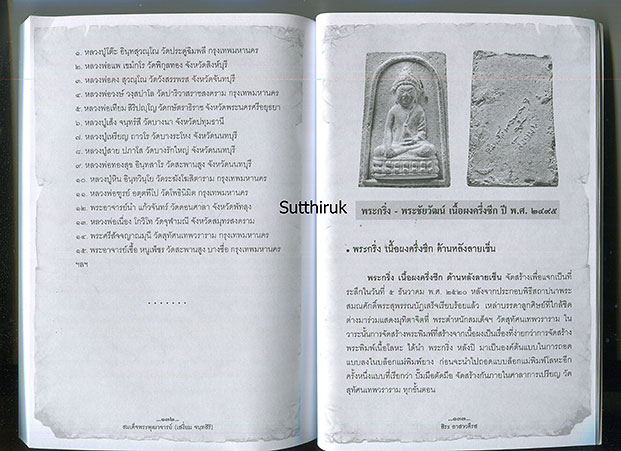 ๑. หลวงปู่โต๊ะ อินฺทสุวณฺโณ วัดประดู่ฉิมพลี กรุงเทพมหานคร
๒. หลวงพ่อแพ เขมังกโร วัดพิกุลทอง จังหวัดสิงห์บุรี
๓. หลวงพ่อคง สุวณฺโณ วัดวังสรรพรส จังหวัดจันทบุรี
๔. หลวงพ่อวงษ์ วงฺสปาโล วัดปาริวาสราชสงคราม กรุงเทพมหานคร
๕. หลวงพ่อเทียม สิริปญฺโญ วัดกษัตราธิราช จังหวัดพระนครศรีอยุธยา
๖. หลวงปู่เส็ง จนฺทรํสี วัดบางนา จังหวัดปทุมธานี
๗. หลวงปู่เหรียญ ถาวโร วัดบางระโหง จังหวัดนนทบุรี
๘. หลวงปู่สาย ปภาโส วัดบางรักใหญ่ จังหวัดนนทบุรี
๙. หลวงพ่อทองสุข อินฺทสาโร วัดสะพานสูง จังหวัดนนทบุรี
๑๐. หลวงปู่หิน อินฺทวินฺโย วัดระฆังโฆสิตาราม กรุงเทพมหานคร
๑๑. หลวงพ่อฑูรย์ อตฺตทีโป วัดโพธินิมิต กรุงเทพมหานคร
๑๒. พระอาจารย์นำ แก้วจันทร์ วัดดอนศาลา จังหวัดพัทลุง
๑๓. หลวงพ่อเนื่อง โกวิโท วัดจุฬามณี จังหวัดสมุทรสงคราม
๑๔. พระศรีสัจจญาณมุนี วัดสุทัศนเทพวราราม กรุงเทพมหานคร
๑๕. พระอาจารย์เชื้อ หนูเพ็ชร วัดสะพานสูง บางซื่อ กรุงเทพมหานคร
ฯลฯ
.......
๑๓๒
สมเด็จพระพุฒาจารย์ (เสงี่ยม จนฺทสิริ)
Sutthiruk
พระกริ่ง - พระชัยวัฒน์ เนื้อผงครึ่งซีก ปี พ.ศ. ๒๔๙๕
• พระกริ่ง เนื้อผงครึ่งซีก ด้านหลังลายเซ็น
พระกริ่ง เนื้อผงครึ่งซีก ด้านหลังลายเซ็น จัดสร้างเพื่อแจกเป็นที่
ระลึกในวันที่ ๕ ธันวาคม พ.ศ. ๒๕๒๐ หลังจากประกอบพิธีสถาปนาพระ
สมณศักดิ์พระสุพรรณบัฏเสร็จเรียบร้อยแล้ว เหล่าบรรดาลูกศิษย์ที่ใกล้ชิด
ต่างมาร่วมแสดงมุทิตาจิตที่ พระตำหนักสมเด็จฯ วัดสุทัศนเทพวราราม ใน
วาระนั้นการจัดสร้างพระพิมพ์ที่สร้างจากเนื้อผงเป็นเรื่องที่ง่ายกว่าการจัดสร้าง
พระพิมพ์เนื้อโลหะ ได้นำ พระกริ่ง หลังปิ มาเป็นองค์ต้นแบบในการถอด
แบบลงในบล็อกแม่พิมพ์ยาง ก่อนจะนำไปถอดแบบล็อกแม่พิมพ์โลหะอีก
ครั้งหนึ่งแบบที่เรียกว่า ปั๊มมือตัดมือ จัดสร้างกันภายในศาลาการเปรียญ วัด
สุทัศนเทพวราราม ทุกขั้นตอน
๑๓๓
ธีระ อาสวดีรส